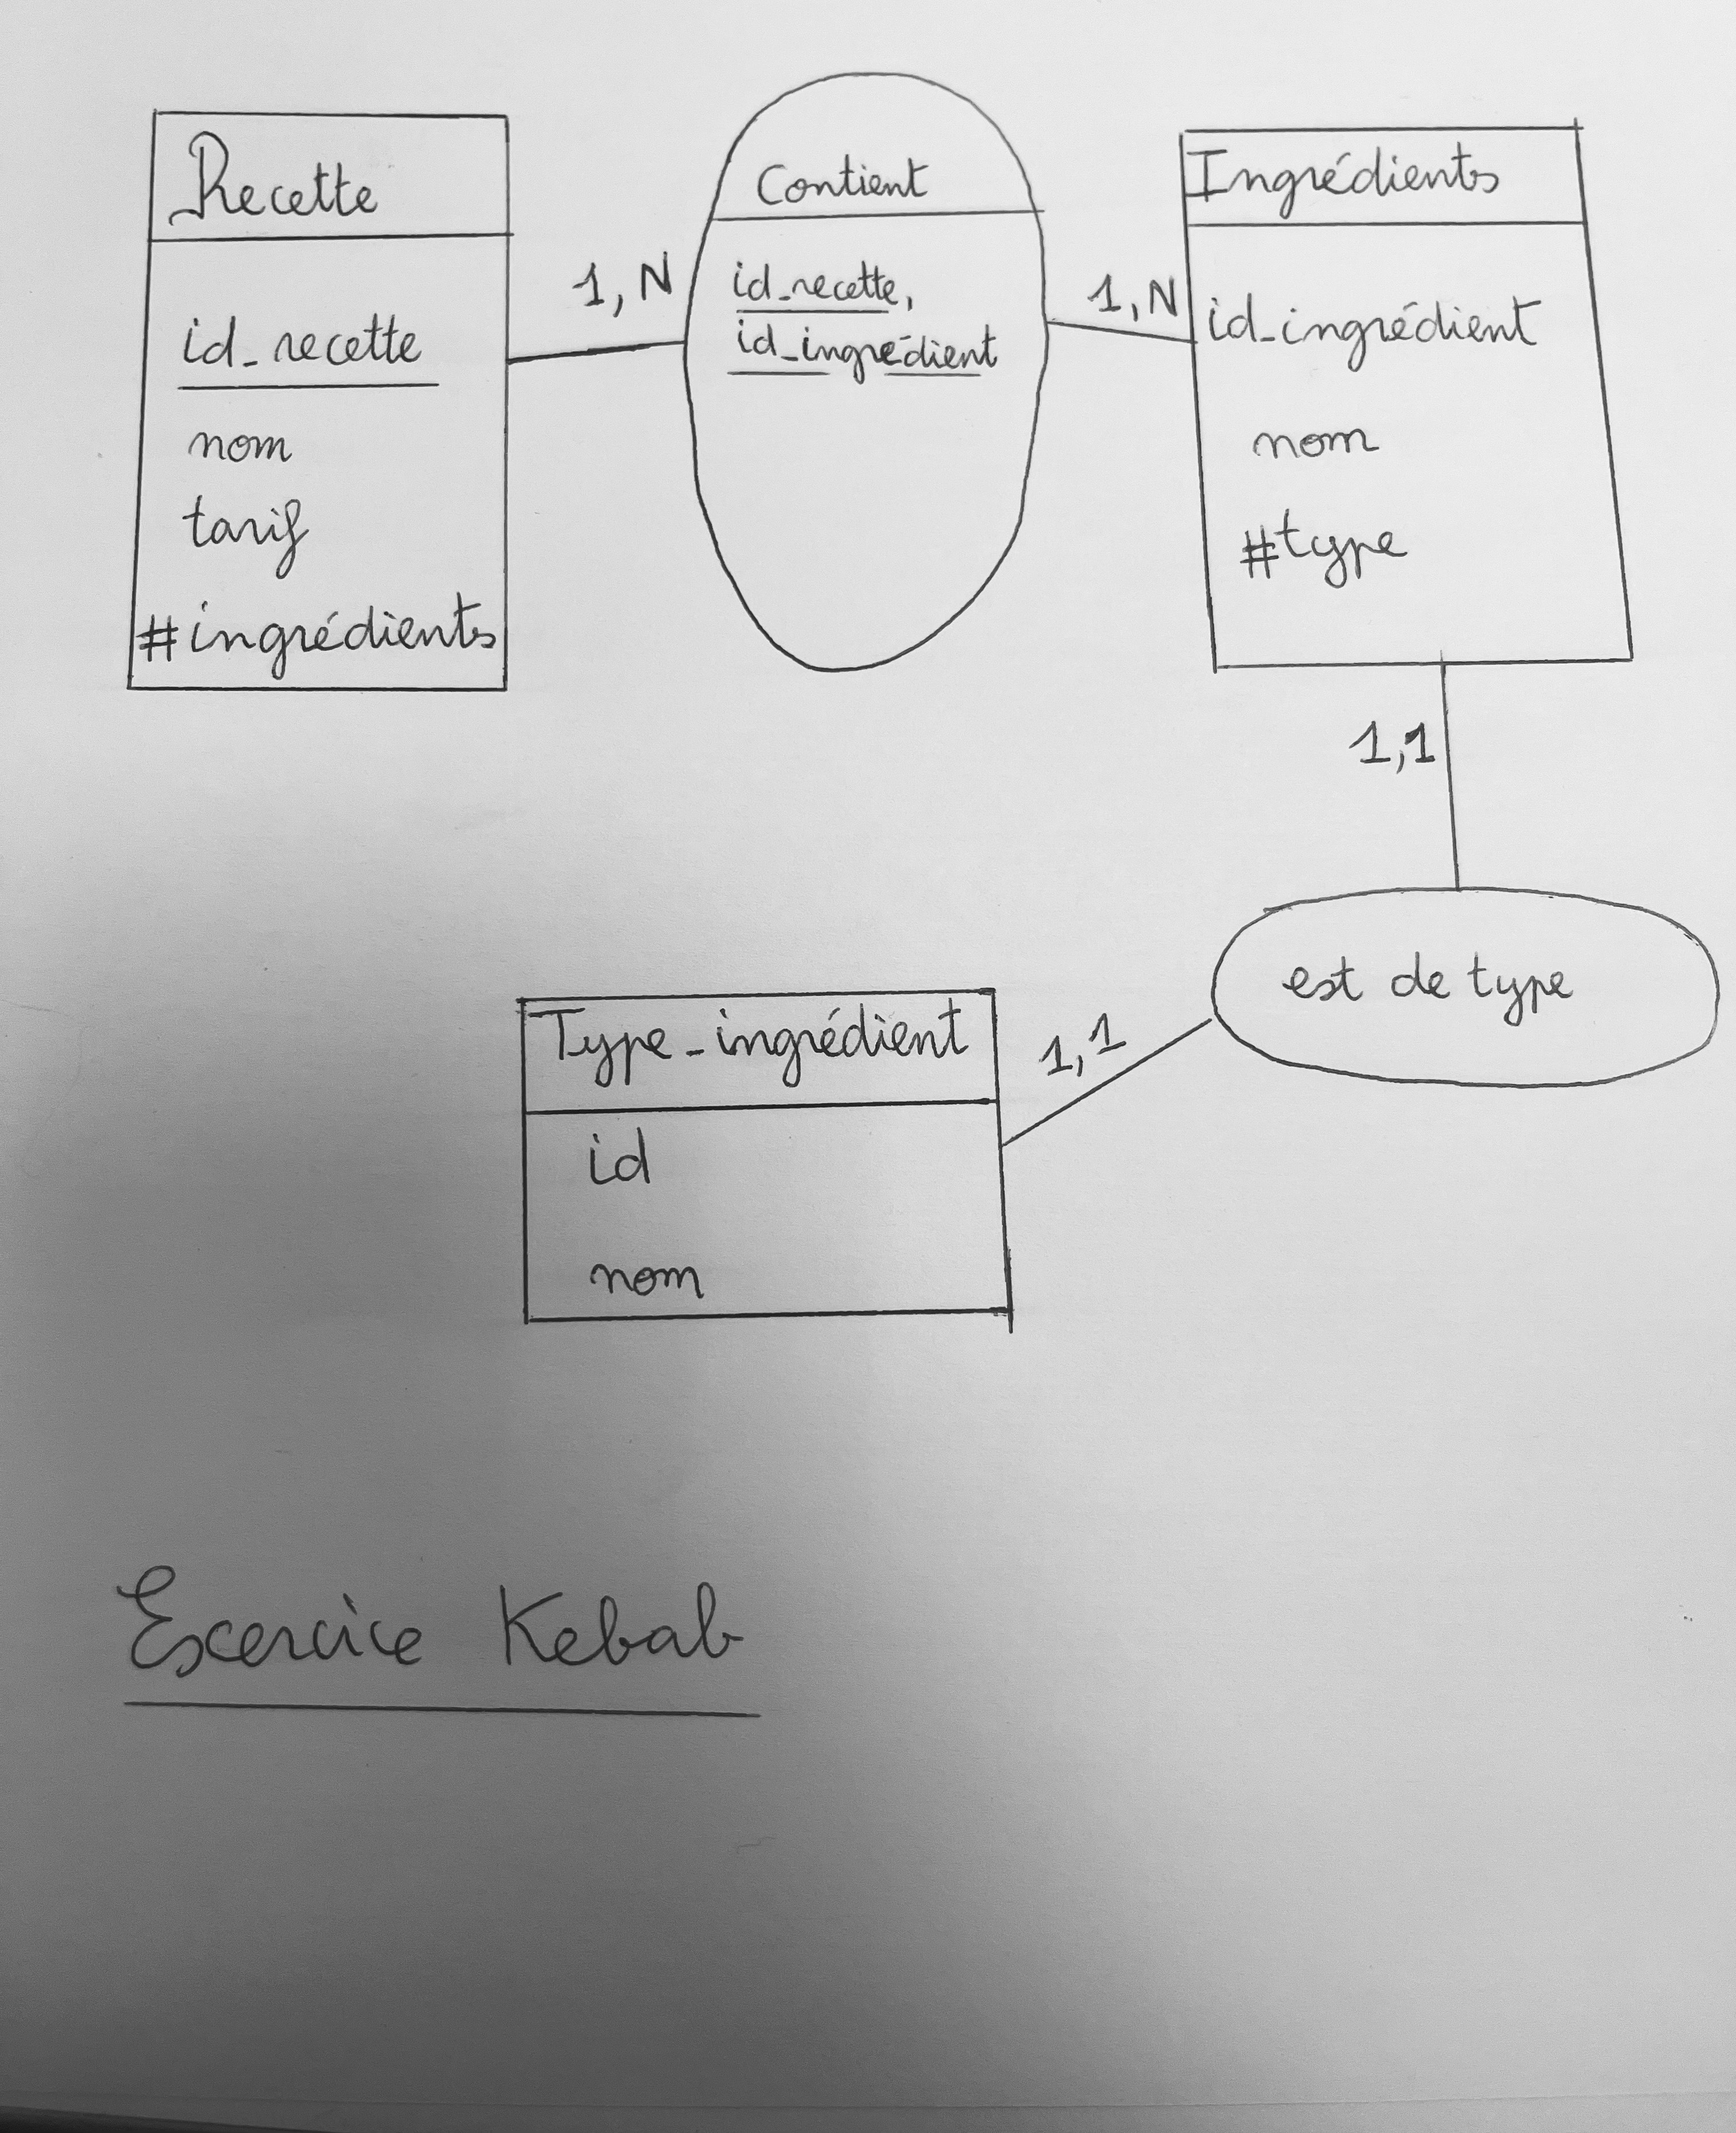 Recette
id_recette
nom
tarif
#ingrédients
1, N
Contient
id_recette,
id_ingrédient
1, N
Ingrédients
id_ingrédient
nom
#type
1,1
est de type
1,1
Type_ingrédient
id
nom
Excercice Kebab